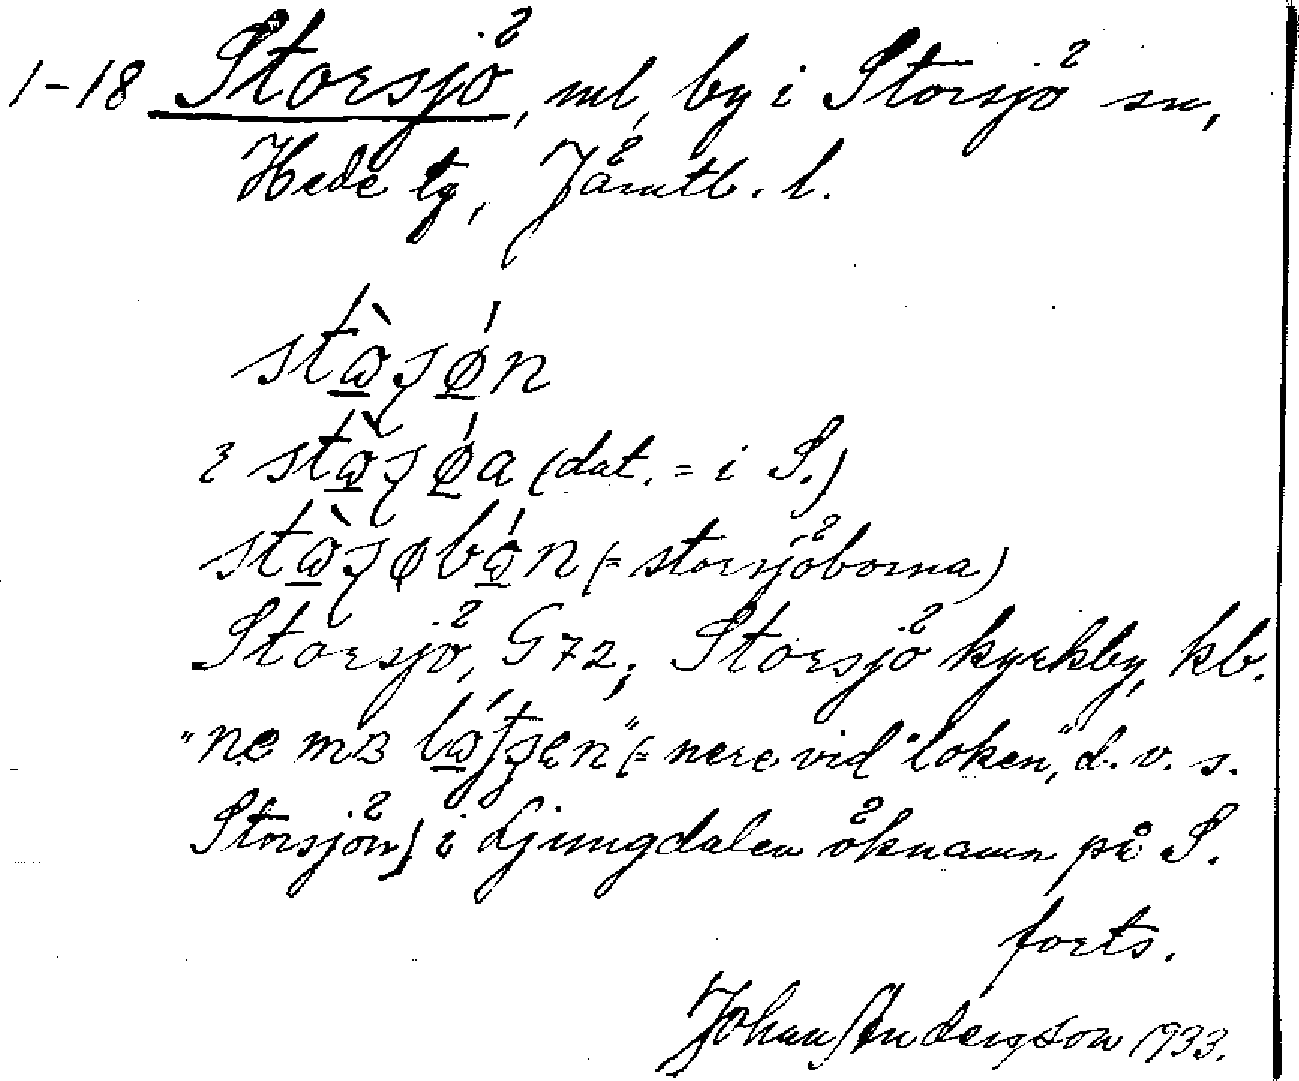 1-18 Storsjö, ml, by i Storsjö sn,
Hede tg, Jämtl. l.
stɷ̀ʂǿn
ɩ stɷ̀ʂǿa (dat. = i S.)
stɷ̀ʂøbɷ́n (= storsjöborna)
Storsjö, G 72; Storsjö kyrkby, kb.
"ne mɜ lɷ́tʂen" (= nere vid "loken", d. v. s.
Storsjön) i Ljungdalen öknamn på S.
forts.
Johan Anderson 1933.